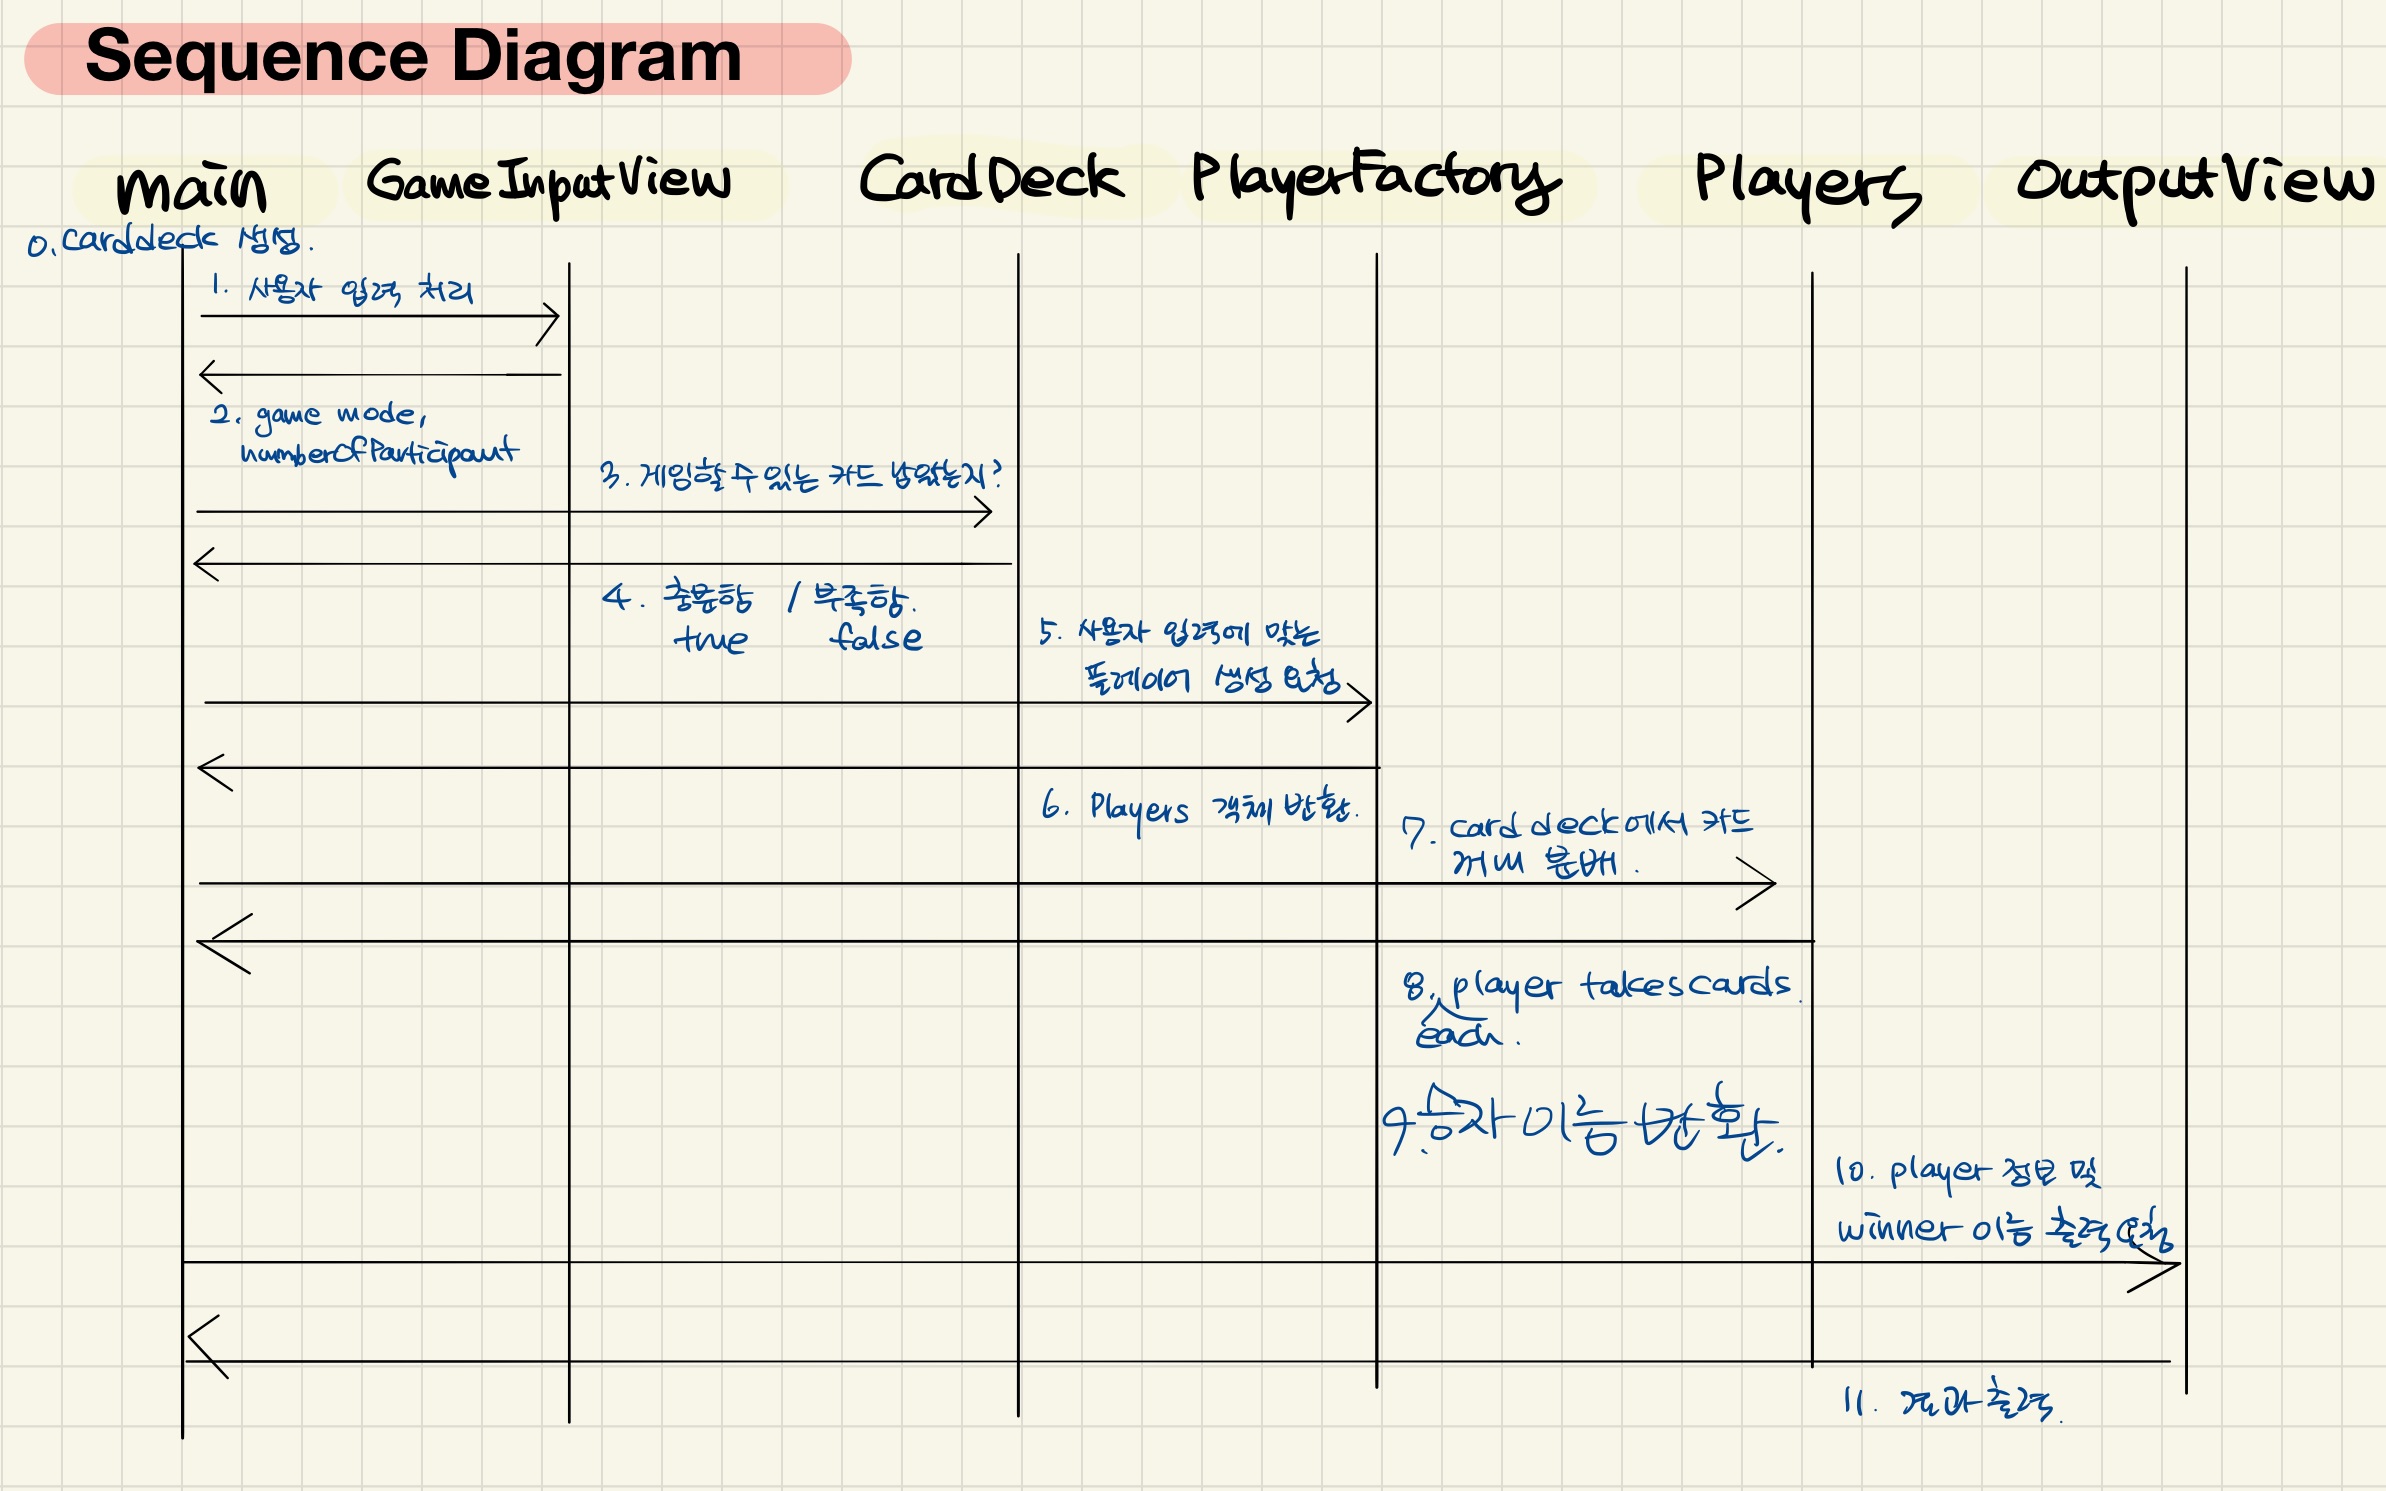 Sequence Diagram
main GameInputView CardDeck PlayerFactory Players OutputView
0. carddeck 생성.
1. 사용자 입력 처리
2. game mode,
numberOfParticipant
3. 게임할 수 있는 카드 남았는지?
4. 충분함 / 부족함.
true false
5. 사용자 입력에 맞는
플레이어 생성 요청
6. Players 객체 반환.
7. card deck에서 카드
꺼내 분배.
8. player takes cards.
each.
9. 승자 이름 반환.
10. player 정보 및
winner 이름 출력 요청
11. 결과 출력.